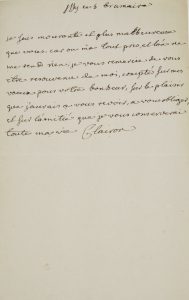 ce 6 brumaire
je suis mourante et plus malheureuse
que vous car on m'a tout pris, et l'on ne
me rend rien, je vous remercie de vous
etre resouvenu de moi, compté sur mes
voeux pour votre bonheur, sur le plaisir
que j'aurais a vous revoir, a vous obliger,
et sur l'amitié que je vous conserverai
toute ma vie Clairon